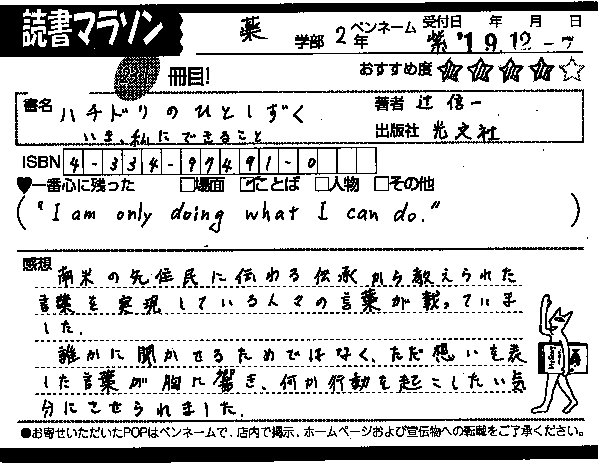 読書マラソン
薬 学部 2 年 ペンネーム 紫 受付日 年 月 日
'19.12-7
冊目!
おすすめ度 ★★★★☆
書名 ハチドリのひとしずく
いま、私にできること
著者 辻信一
出版社 光文社
ISBN 4-334-97491-0
♥一番心に残った □場面 ☑ことば □人物 □その他
("I am only doing what I can do.")
感想
南米の先住民に伝わる伝承から教えられた
言葉を実現している人々の言葉が載っていま
した。
誰かに聞かせるためではなく、ただ想いを表
した言葉が胸に響き、何か行動を起こしたい気
分にさせられました。
●お寄せいただいたPOPはペンネームで、店内で掲示、ホームページおよび宣伝物への転載をご了承ください。